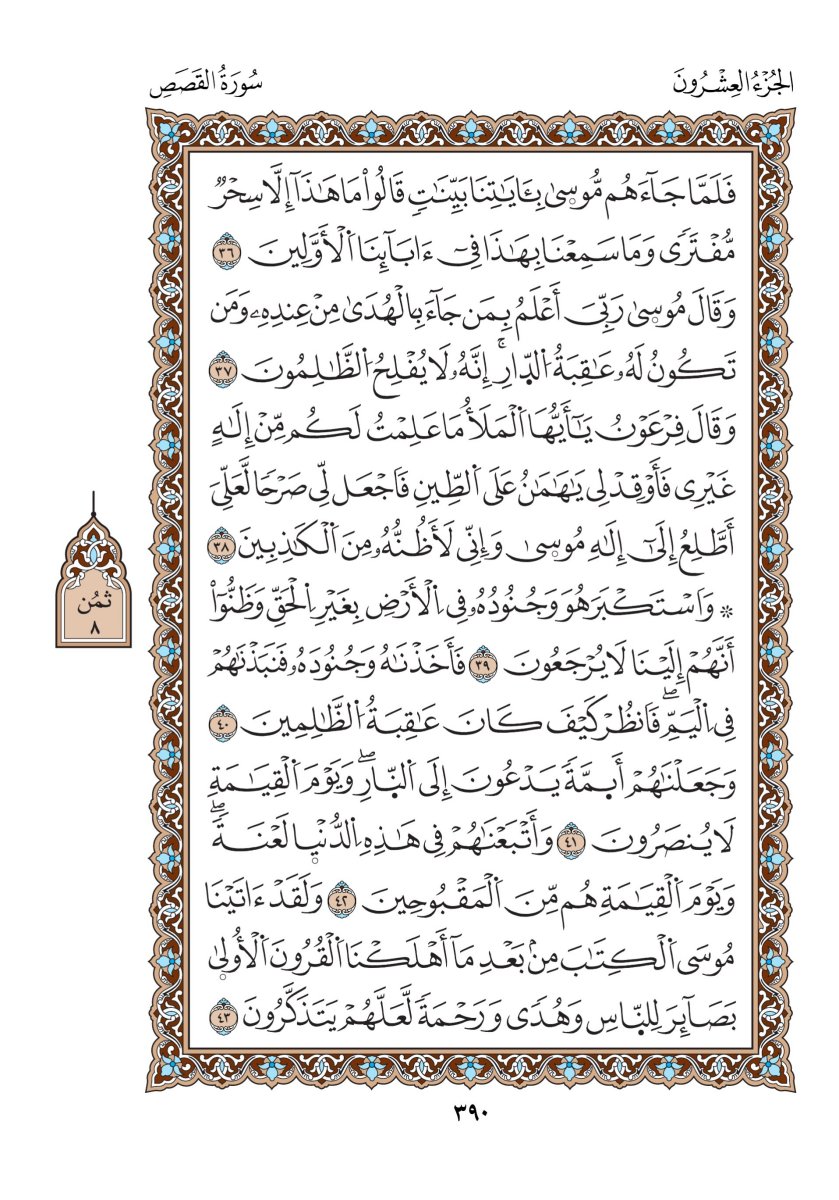 الجُزْءُ العِشْرُونَ سُورَةُ القَصَصِ
فَلَمَّا جَآءَهُم مُّوسىٰ بِـَٔايَٰتِنَا بَيِّنَٰتٖ قَالُواْ مَا هَٰذَآ إِلَّا سِحْرٞ
مُّفْتَرٗى وَمَا سَمِعْنَا بِهَٰذَا فِيٓ ءَابَآئِنَا اَ۬لْأَوَّلِينَ ٣٦
وَقَالَ مُوسىٰ رَبِّيَ أَعْلَمُ بِمَن جَآءَ بِالْهُدَىٰ مِنْ عِندِهِۦ وَمَن
تَكُونُ لَهُۥ عَٰقِبَةُ اُ۬لدّ۪ارِۚ إِنَّهُۥ لَا يُفْلِحُ اُ۬لظَّٰلِمُونَ ٣٧
وَقَالَ فِرْعَوْنُ يَٰٓأَيُّهَا اَ۬لْمَلَأُ مَا عَلِمْتُ لَكُم مِّنْ إِلَٰهٍ
غَيْرِي فَأَوْقِدْ لِي يَٰهَٰمَٰنُ عَلَى اَ۬لطِّينِ فَاجْعَل لِّي صَرْحٗا لَّعَلِّيَ
أَطَّلِعُ إِلَىٰٓ إِلَٰهِ مُوسىٰ وَإِنِّي لَأَظُنُّهُۥ مِنَ اَ۬لْكَٰذِبِينَ ٣٨
۞ وَاسْتَكْبَرَ هُوَ وَجُنُودُهُۥ فِي اِ۬لْأَرْضِ بِغَيْرِ اِ۬لْحَقِّ وَظَنُّوٓاْ
أَنَّهُمْ إِلَيْنَا لَا يُرْجَعُونَ ٣٩ فَأَخَذْنَٰهُ وَجُنُودَهُۥ فَنَبَذْنَٰهُمْ
فِي اِ۬لْيَمِّۖ فَانظُرْ كَيْفَ كَانَ عَٰقِبَةُ اُ۬لظَّٰلِمِينَ ٤٠
وَجَعَلْنَٰهُمْ أَئِمَّةٗ يَدْعُونَ إِلَى اَ۬لنّ۪ارِۖ وَيَوْمَ اَ۬لْقِيَٰمَةِ
لَا يُنصَرُونَ ٤١ وَأَتْبَعْنَٰهُمْ فِي هَٰذِهِ اِ۬لدُّنْي۪ا لَعْنَةٗۖ
وَيَوْمَ اَ۬لْقِيَٰمَةِ هُم مِّنَ اَ۬لْمَقْبُوحِينَ ٤٢ وَلَقَدْ ءَاتَيْنَا
مُوسَى اَ۬لْكِتَٰبَ مِنۢ بَعْدِ مَآ أَهْلَكْنَا اَ۬لْقُرُونَ اَ۬لْأُولىٰ
بَصَآئِرَ لِلنّ۪اسِ وَهُدٗى وَرَحْمَةٗ لَّعَلَّهُمْ يَتَذَكَّرُونَ ٤٣
ثُمُن
٨
٣٩٠